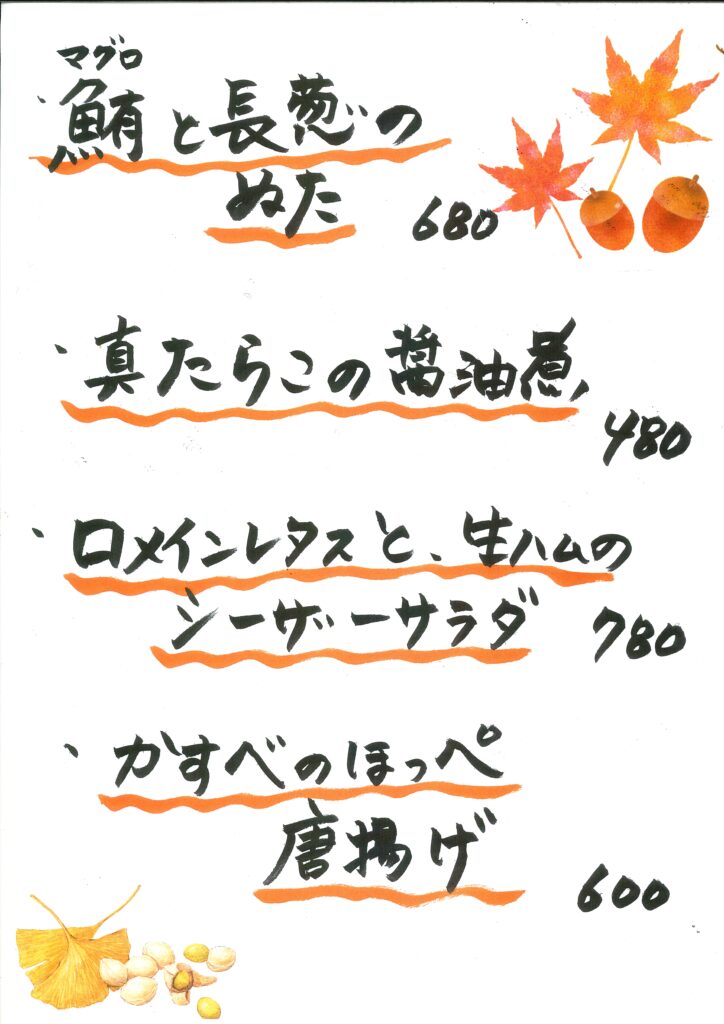 マグロ
・鮪と長葱の
ぬた 680
・真たらこの醤油煮
480
・ロメインレタスと、生ハムの
シーザーサラダ 780
・かすべのほっぺ
唐揚げ 600